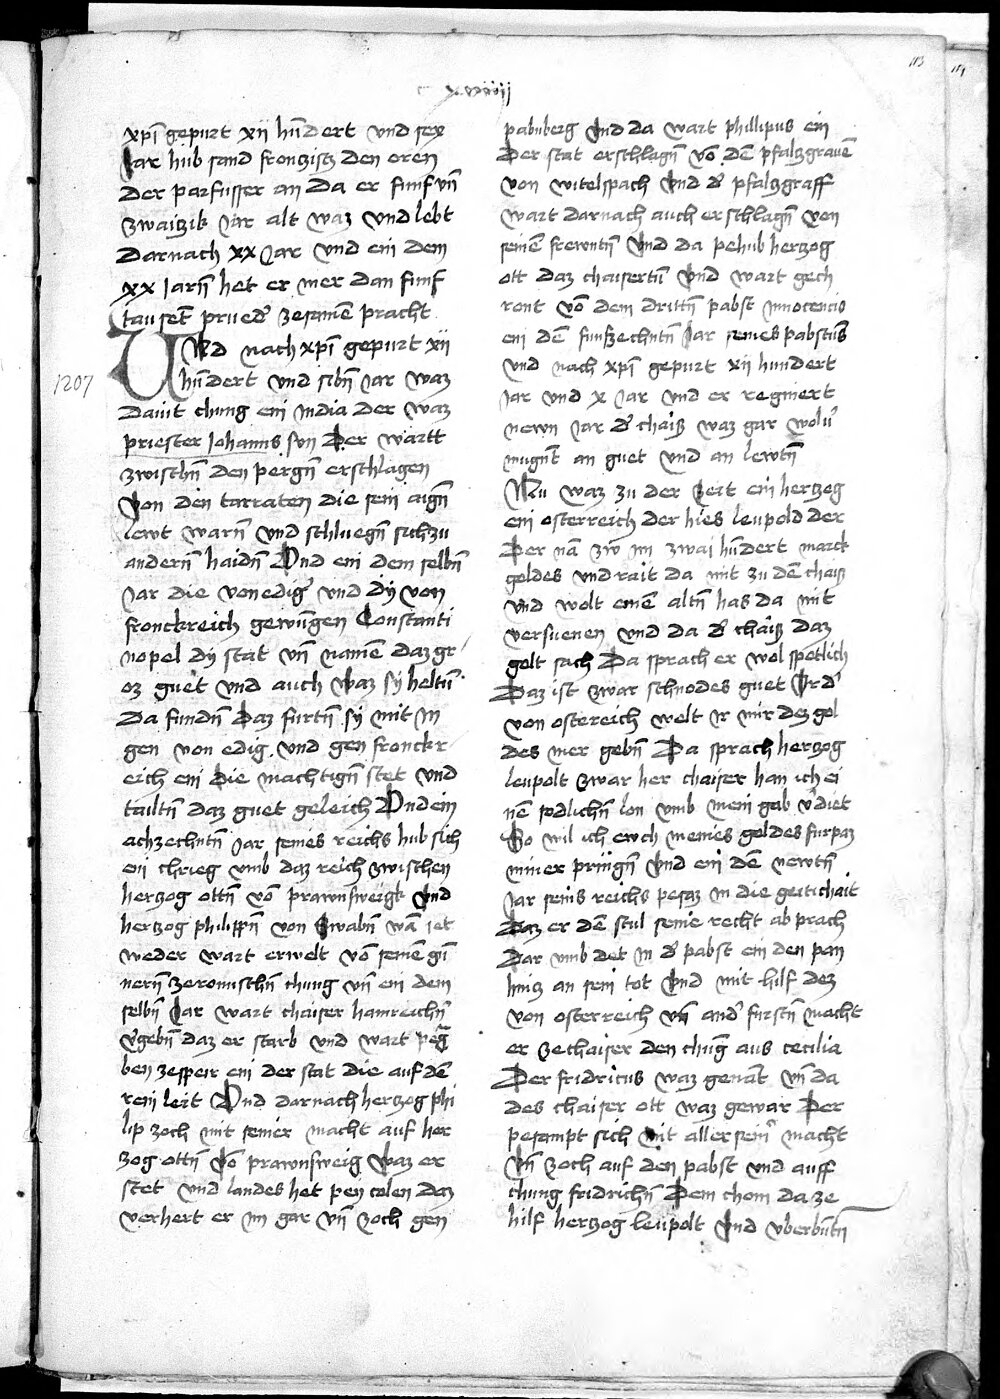 xviiij
113
114
xp̄i gepurt xij hūdert vnd sex
Jar hub sand fronzisg den oren
der parfusser an da er funf vn̄
zwaizik Jar alt waz vnd lebt
darnach xx Jar vnd ein dem
xx Jarn̄ het er mer dan funf
tausēt prued' zesamē pracht
VNd nach xp̄i gepurt xij
1207
hūdert vnd sibn̄ Jar waz
dauit chung ein India der waz
priester Johanns sun Der wartt
zwischn̄ den pergn̄ erschlagen
Von den tarraten die sein aign̄
lewt warn̄ vnd schluegn̄ sich zu
andern̄ haidn̄ Vnd ein dem selbn̄
Jar die venedig' vnd dy von
fronckreich gewūgen Constanti
nopel dy stat vn̄ namē daz gr
oz guet vnd auch waz sy heltū
Da fundn̄ Daz furtn̄ sy mit in
gen von edig vnd gen fronckr
eich ein die machtign̄ stet vnd
tailtn̄ daz guet geleich Vnd ein
achzechntn̄ Jar seines reichs hub sich
ein chrieg vmb daz reich zwischen
herzog ottn̄ vō prawnsweigk vnd
herzog philippn̄ von Swabn̄ wā iet
weder wart erwelt vō seinē gū
nern̄ zeromischn̄ chung vn̄ ein dem
selbn̄ Jar wart chaiser hainreichn̄
v'gebn̄ daz er starb vnd wart pegra
ben zespeir ein der stat die auf dē
rein leit Vnd darnach herzog phi
lip zoch mit seiner macht auf her
zog ottn̄ vō prawnsweig waz er
stet vnd landes het pey colen daz
verhert er im gar vn̄ zoch gen
pabnberg Vnd da wart phillipus ein
Der stat erschlagn̄ vō dē pfalzgrauē
von witelspach Vnd d' pfalzgraff
wart darnach auch erschlagn̄ von
seinē frewntn̄ Vnd da pehub herzog
ott daz chaisertū Vnd wart gech
ront vō dem drittn̄ pabst Innocencio
ein dē funfzechntn̄ Jar seines pabstūs
vnd nach xp̄i gepurt xij hundert
Jar vnd x Jar vnd er regniert
newn Jar d' chaiser waz gar wolu'
mugnt an guet vnd an lewtn̄
Nu waz zu der zeit ein herzog
ein osterreich der hies leupold der
Der nā zw im zwai hūdert marck
goldes vnd rait da mit zu dē chaiser
vnd wolt einē altn̄ has da mit
versuenen vnd da d' chaiser daz
golt sach Da sprach er wol spotlich
Daz ist zwar schnodes guet Ir d'
von ostereich welt ir mir dez gol
des mer gebn̄ Da sprach herzog
leupolt zwar her chaiser han ich ei
nē sodlichn̄ lon vmb mein gab v'diet
So wil ich ewch meines goldes furpaz
minner pringn̄ Vnd ein dē newtn̄
Jar seins reichs pesaz in die geitichait
Daz er dē stul seine recht ab prach
Dar vmb det in d' pabst ein den pan
hincz an sein tot Vnd mit hilf dez
von osterreich vn̄ and' furstn̄ macht
er zechaiser den chūg aus cecilia
Der fridricus waz genāt vn̄ da
des chaiser ott waz gewar Der
pesampt sich mit aller sein' macht
Vn̄ zoch auf den pabst vnd auff
chung fridrichn̄ Dem chom da ze
hilf herzog leupolt Vnd vberbūtn̄